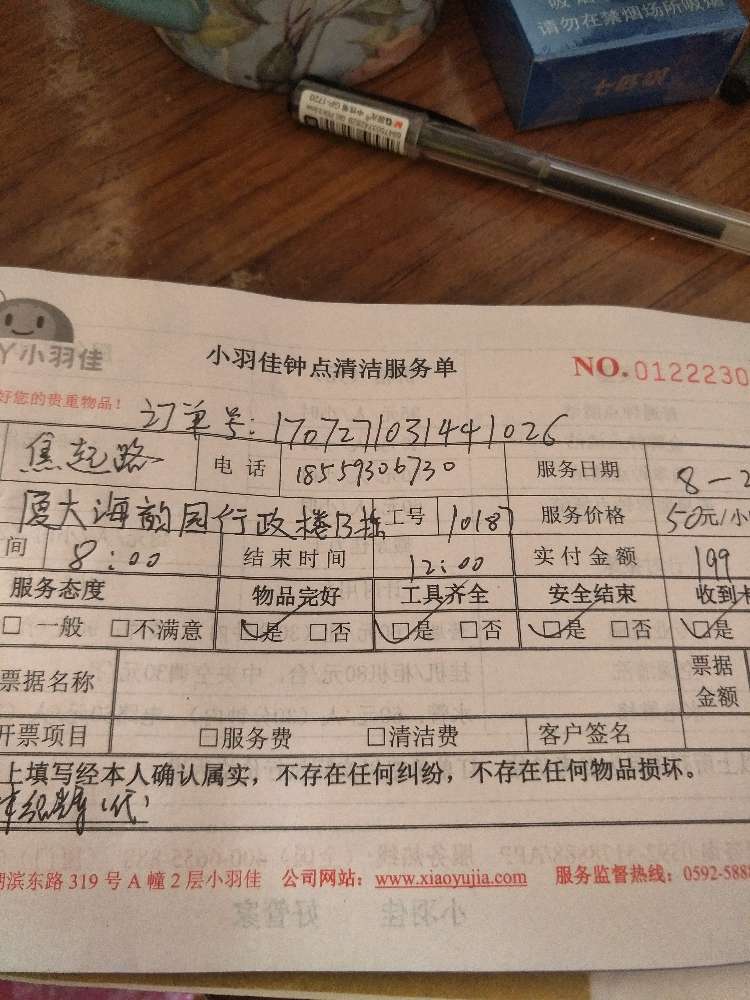 请勿在禁烟场所吸烟
小羽佳
小羽佳钟点清洁服务单
NO.0122230
好您的贵重物品！
订单号：1707271031441026
焦起路 电话 18559306730 服务日期 8-2
厦大海韵园行政楼B栋 工号 10187 服务价格 50元/小
间 8:00 结束时间 12:00 实付金额 199
服务态度 物品完好 工具齐全 安全结束 收到
□一般 □不满意 ☑是 □否 ☑是 □否 ☑是 □否 ☑是
票据名称 票据金额
开票项目 □服务费 □清洁费 客户签名
上填写经本人确认属实，不存在任何纠纷，不存在任何物品损坏。
(代)
湖滨东路319号A幢2层小羽佳 公司网站：www.xiaoyujia.com 服务监督热线：0592-5888